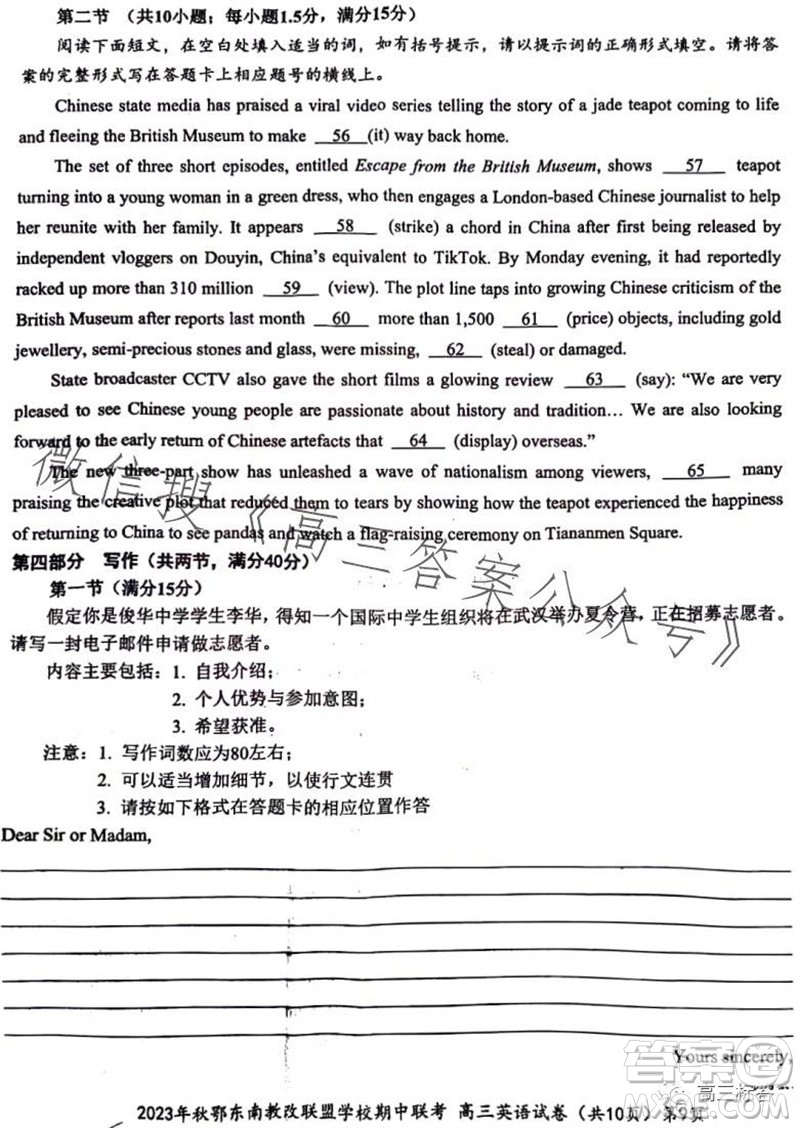 第二节 （共10小题；每小题1.5分，满分15分）
阅读下面短文，在空白处填入适当的词，如有括号提示，请以提示词的正确形式填空。请将答
案的完整形式写在答题卡上相应题号的横线上。
Chinese state media has praised a viral video series telling the story of a jade teapot coming to life
and fleeing the British Museum to make 56 (it) way back home.
The set of three short episodes, entitled Escape from the British Museum, shows 57 teapot
turning into a young woman in a green dress, who then engages a London-based Chinese journalist to help
her reunite with her family. It appears 58 (strike) a chord in China after first being released by
independent vloggers on Douyin, China's equivalent to TikTok. By Monday evening, it had reportedly
racked up more than 310 million 59 (view). The plot line taps into growing Chinese criticism of the
British Museum after reports last month 60 more than 1,500 61 (price) objects, including gold
jewellery, semi-precious stones and glass, were missing, 62 (steal) or damaged.
State broadcaster CCTV also gave the short films a glowing review 63 (say): "We are very
pleased to see Chinese young people are passionate about history and tradition… We are also looking
forward to the early return of Chinese artefacts that 64 (display) overseas."
The new three-part show has unleashed a wave of nationalism among viewers, 65 many
praising the creative plot that reduced them to tears by showing how the teapot experienced the happiness
of returning to China to see pandas and watch a flag-raising ceremony on Tiananmen Square.
第四部分 写作（共两节，满分40分）
第一节（满分15分）
假定你是俊华中学学生李华，得知一个国际中学生组织将在武汉举办夏令营，正在招募志愿者。
请写一封电子邮件申请做志愿者。
内容主要包括：1. 自我介绍；
2. 个人优势与参加意图；
3. 希望获准。
注意：1. 写作词数应为80左右；
2. 可以适当增加细节，以使行文连贯
3. 请按如下格式在答题卡的相应位置作答
Dear Sir or Madam,
Yours sincerely,
2023年秋鄂东南教改联盟学校期中联考 高三英语试卷（共10页）第9页
微信搜《高三答案公众号》
答案圈